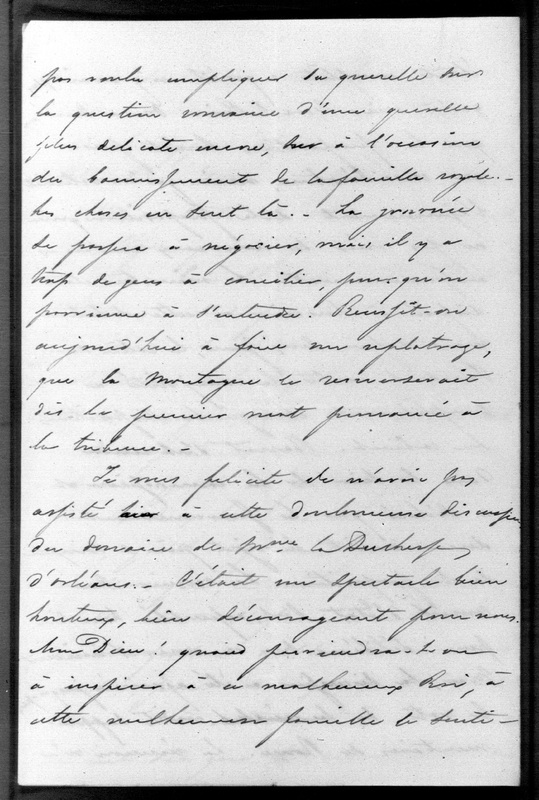 pas voulu compliquer sa querelle sur
la question romaine d'une querelle
plus délicate encore, sur à l'occasion
du bannissement de la famille royale. -
Les choses en sont là. - La journée
se passera à négocier, mais il y a
trop de gens à concilier, pour qu'on
parvienne à s'entendre. Réussît-on
aujourd'hui à faire un replatrage,
que la Montagne le renverserait
dès le premier mot prononcé à
la tribune. -
Je me felicite de n'avoir pas
assisté hier à cette douloureuse discussion
du douaire de Mme la Duchesse
d'orléans. - C'était un spectacle bien
honteux, bien décourageant pour nous.
Mon Dieu! quand parviendra-t-on
à inspirer à ce malheureux Roi, à
cette malheureuse famille le senti-